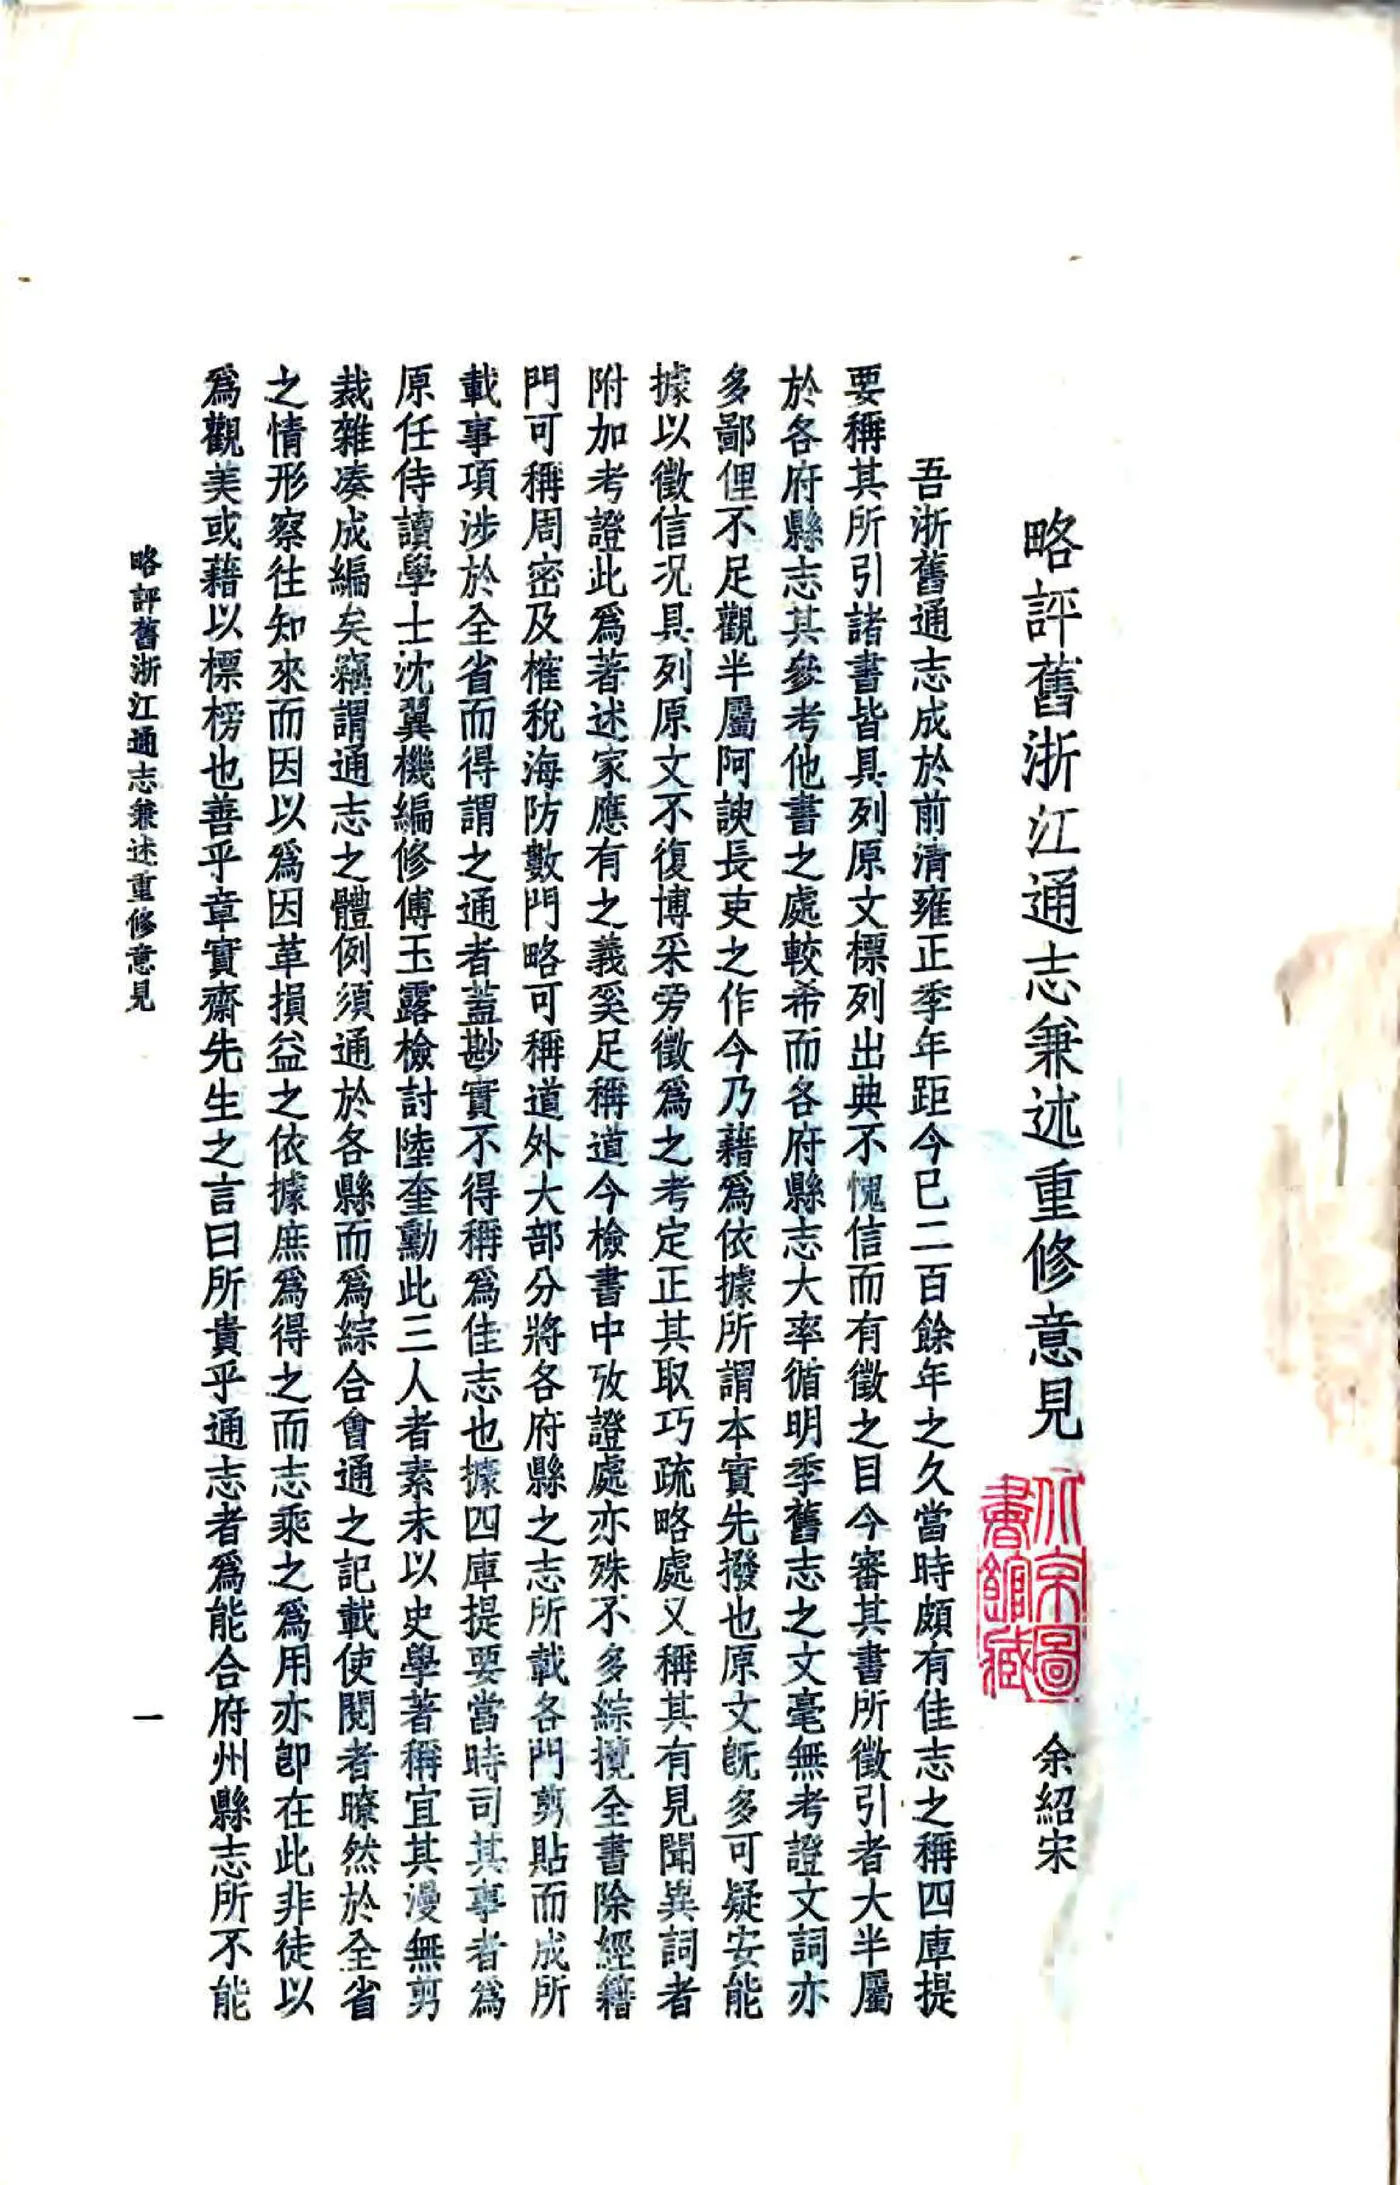 略評舊浙江通志兼述重修意見
余紹宋
北京圖書館藏
吾浙舊通志成於前清雍正季年距今已二百餘年之久當時頗有佳志之稱四庫提
要稱其所引諸書皆具列原文標列出典不愧信而有徵之目今審其書所徵引者大半屬
於各府縣志其參考他書之處較希而各府縣志大率循明季舊志之文毫無考證文詞亦
多鄙俚不足觀半屬阿諛長吏之作今乃藉爲依據所謂本實先撥也原文既多可疑安能
據以徵信况具列原文不復博采旁徵爲之考定正其取巧疏略處又稱其有見聞異詞者
附加考證此爲著述家應有之義奚足稱道今檢書中攷證處亦殊不多綜攬全書除經籍
門可稱周密及榷稅海防數門略可稱道外大部分將各府縣之志所載各門剪貼而成所
載事項涉於全省而得謂之通者蓋尠實不得稱爲佳志也據四庫提要當時司其事者爲
原任侍讀學士沈翼機編修傅玉露檢討陸奎勳此三人者素未以史學著稱宜其漫無剪
裁雜凑成編矣竊謂通志之體例須通於各縣而爲綜合會通之記載使閱者暸然於全省
之情形察往知來而因以爲因革損益之依據庶爲得之而志乘之爲用亦卽在此非徒以
爲觀美或藉以標榜也善乎章實齋先生之言曰所貴乎通志者爲能合府州縣志所不能
略評舊浙江通志兼述重修意見
一